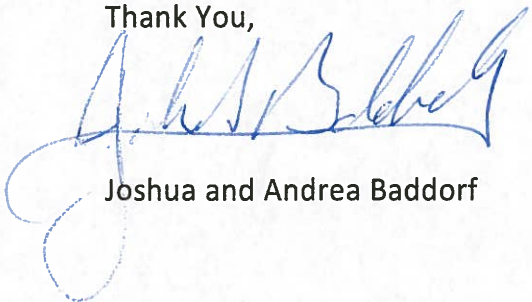 Thank You,
Joshua and Andrea Baddorf